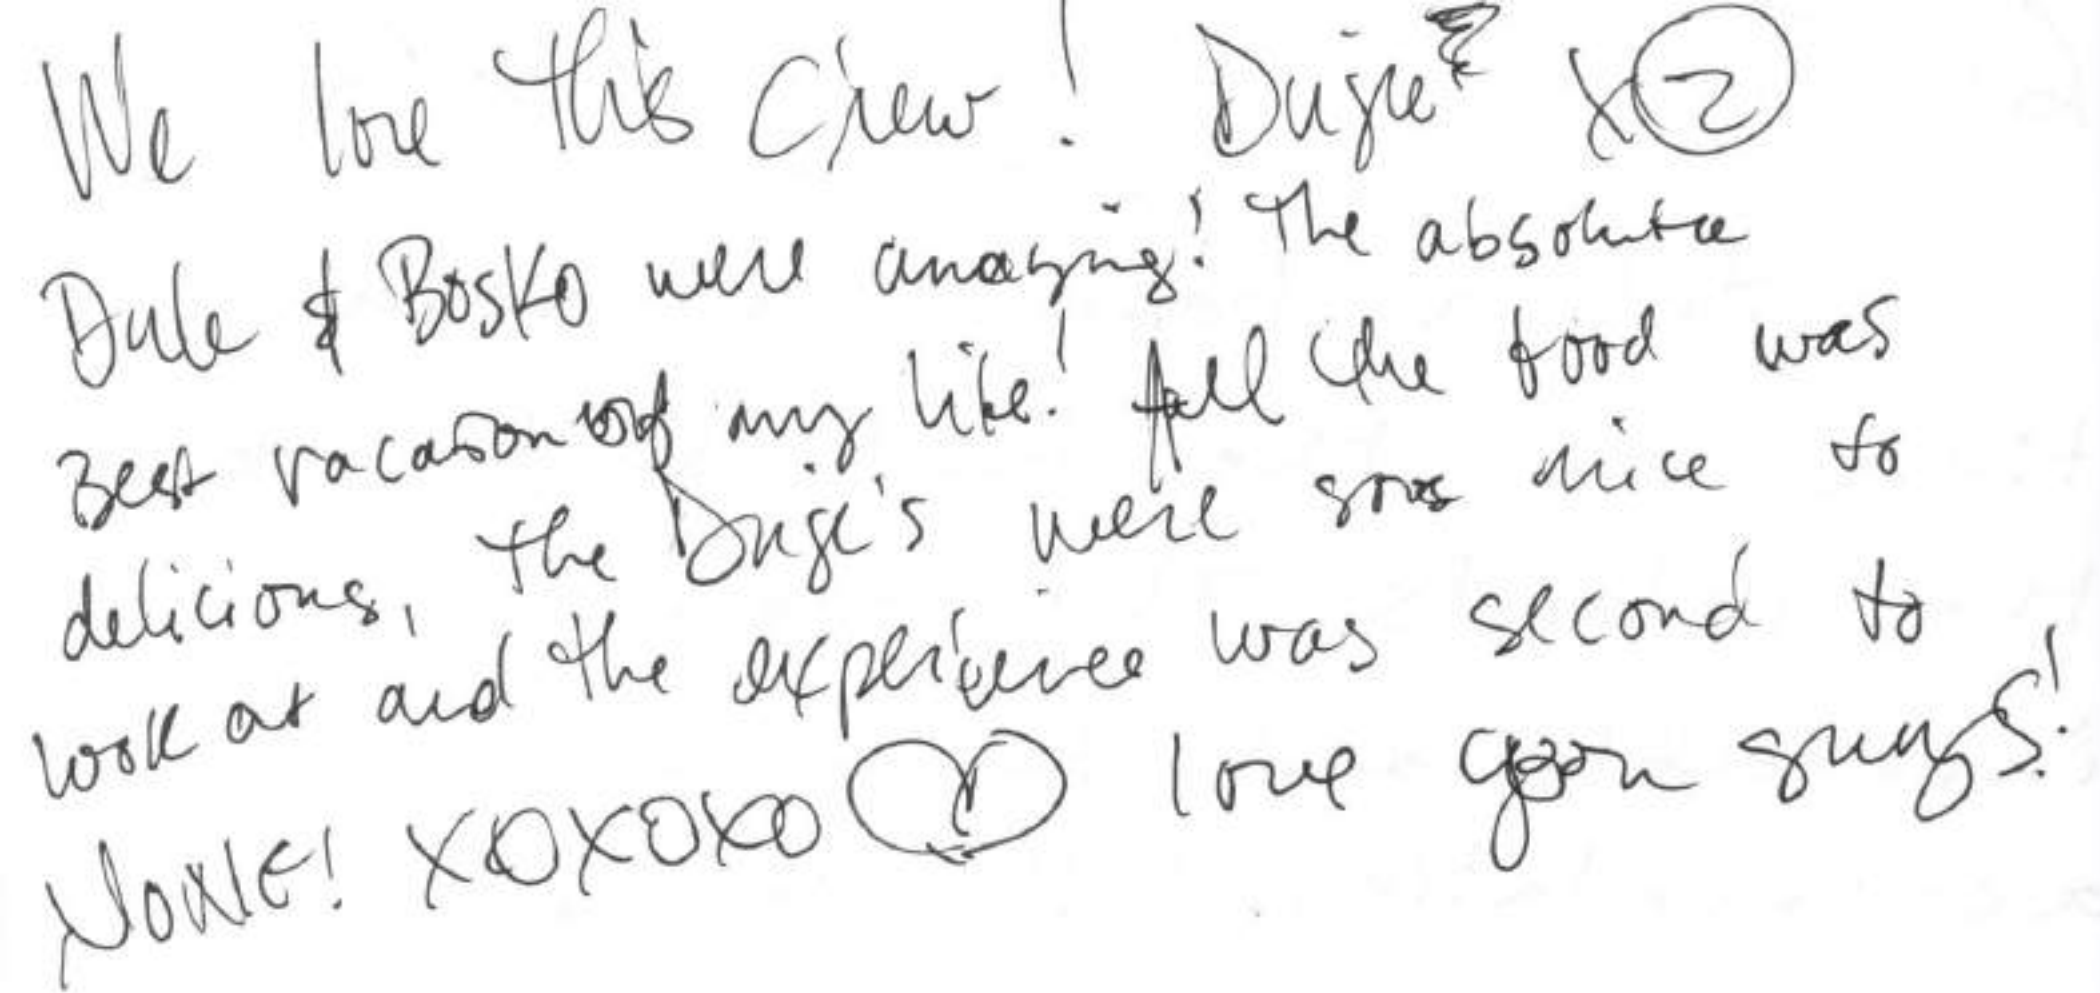 We love this Crew! Dujie x 2
Dule & Bosko were amazing! The absolute
Best vacation of my life! All the food was
delicious, the Duje's were sooo nice to
look at and the experience was second to
NONE! XOXOXO ♡ love you guys!